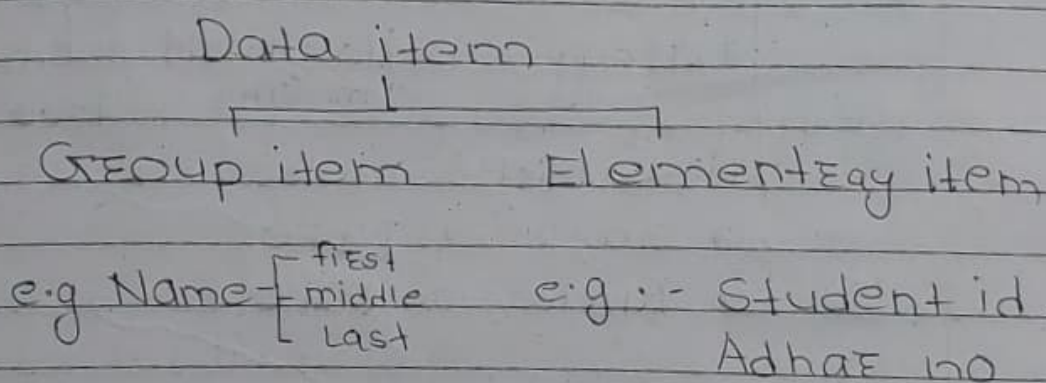 Data item
Group item Elementray item
e.g Name first
middle
Last
e.g :- Student id
Adhar no